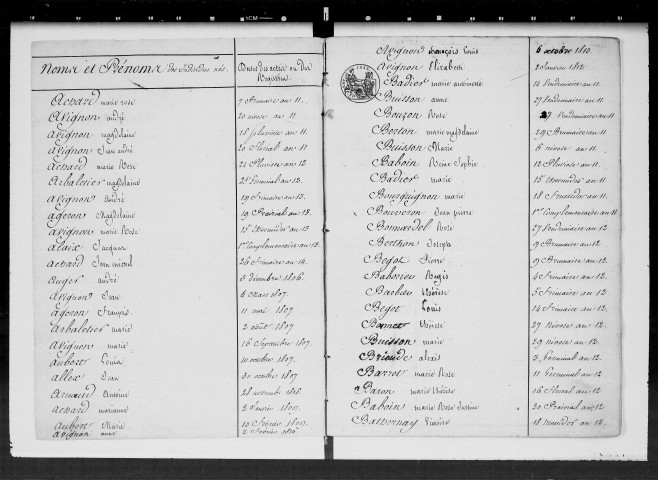 Noms et Prénoms des Individus nés. Dates des actes ou Des Registres
Achard marie rose 7 Brumaire an 11.
Avignon andré 20 nivose an 11.
Avignon magdelaine 18 pluviose an 11.
Avignon Jean andré 20 floréal an 11.
Achard marie Rose 24 Pluviose an 12
Arbaletier magdelaine 21 Germinal an 12.
Avignon André 19 frimaire an 13.
Ageron Magdelaine 19 Prairial an 13.
Avignon marie Rose 15 thermidor an 13
Alaix Jacques 1er Complémentaire an 13.
Achard Jean michel 26 frimaire an 14.
Auger andré 3 décembre 1806.
Avignon Jean 6 mars 1807.
Ageron François 11 mai 1807.
Arbaletier marie 2 août 1807.
Avignon marie 16 Septembre 1807.
Aubert Louis 10 octobre 1807.
Allex Jean 30 octobre 1807
Armand Antoine 28 novembre 1808.
Achard marianne 2 Janvier 1809.
Aubert Marie 10 février 1809.
Avignon anne 2 février 1810.
Avignon françois Louis 6 octobre 1810.
Avignon Elizabeth 2 Janvier 1812
Badier marie antoinette 14 Vendemiaire an 11.
Buisson anne 27 Vendemiaire an 11.
Bouzon Rose 27 Vendemiaire an 11.
Berton marie magdelaine 29 Brumaire an 11.
Buisson Marie 6 nivose an 11.
Baboin Reine Sophie 12 Pluviose an 11.
Badier marie 15 thermidor an 11.
Bourguignon marie 18 fructidor an 11.
Bouveron Jean pierre 1er Complémentaire an 11.
Bonnardel Rose 27 Vendemiaire an 12
Berthon Joseph 9 Brumaire an 12.
Begot Pierre 9 Brumaire an 12
Baborier Régis 4 frimaire an 12.
Barbier thérèse 5 frimaire an 12.
Begot Louis 14 frimaire an 12.
Barret thérèse 27 Nivose an 12
Buisson marie 29 nivose an 12.
Brioude alexis 3 Germinal an 12.
Barret marie Rose 11 Germinal an 12
Baron marie thérèse 16 floreal an 12
Baboin marie Rose Justine 20 Prairial an 12
Bathernay 18 messidor an 12.